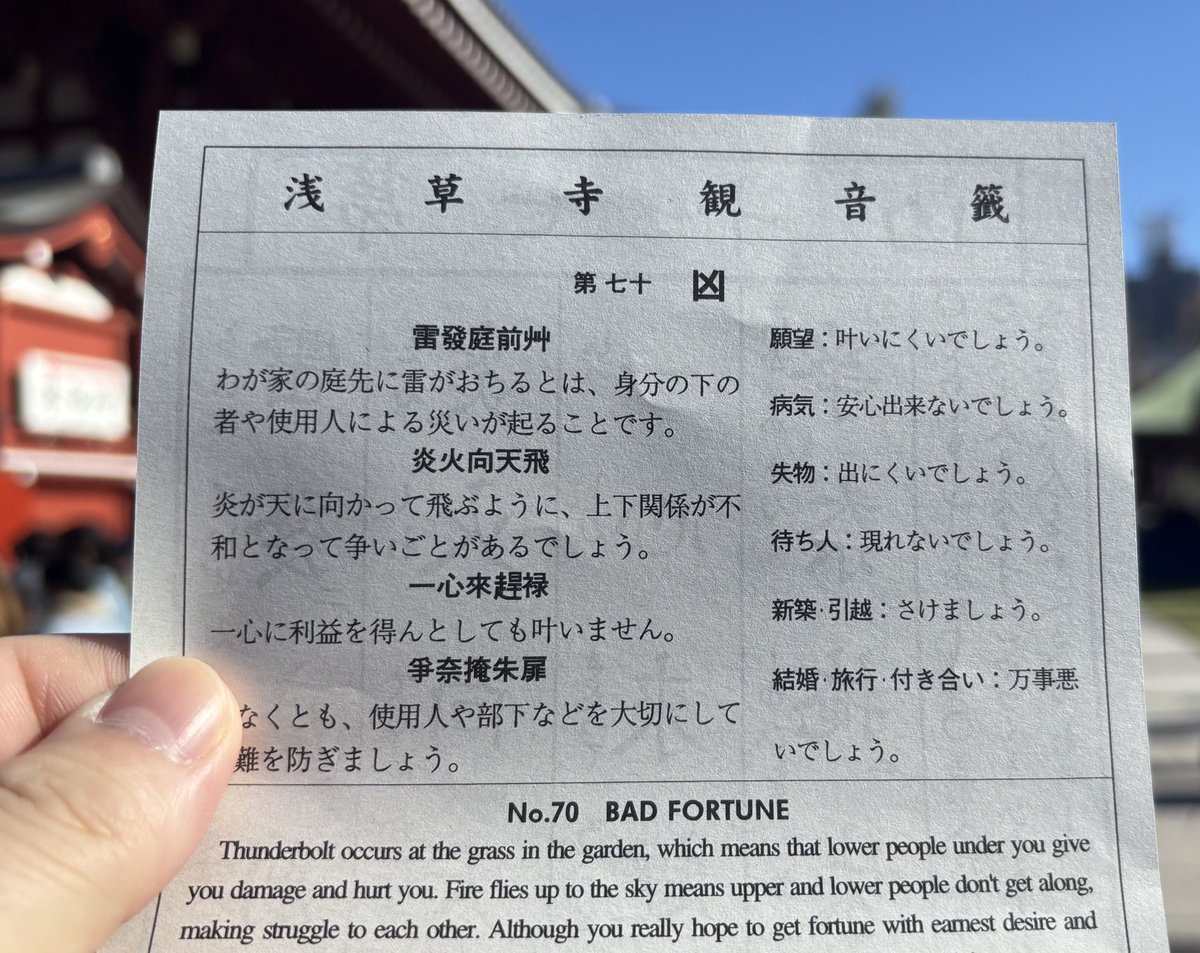 浅草寺観音籤
第七十 凶
雷發庭前艸
わが家の庭先に雷がおちるとは、身分の下の
者や使用人による災いが起ることです。
炎火向天飛
炎が天に向かって飛ぶように、上下関係が不
和となって争いごとがあるでしょう。
一心來趕禄
一心に利益を得んとしても叶いません。
爭奈掩朱扉
なくとも、使用人や部下などを大切にして
難を防ぎましょう。
願望：叶いにくいでしょう。
病気：安心出来ないでしょう。
失物：出にくいでしょう。
待ち人：現れないでしょう。
新築·引越：さけましょう。
結婚·旅行·付き合い：万事悪
いでしょう。
No.70 BAD FORTUNE
Thunderbolt occurs at the grass in the garden, which means that lower people under you give
you damage and hurt you. Fire flies up to the sky means upper and lower people don't get along,
making struggle to each other. Although you really hope to get fortune with earnest desire and